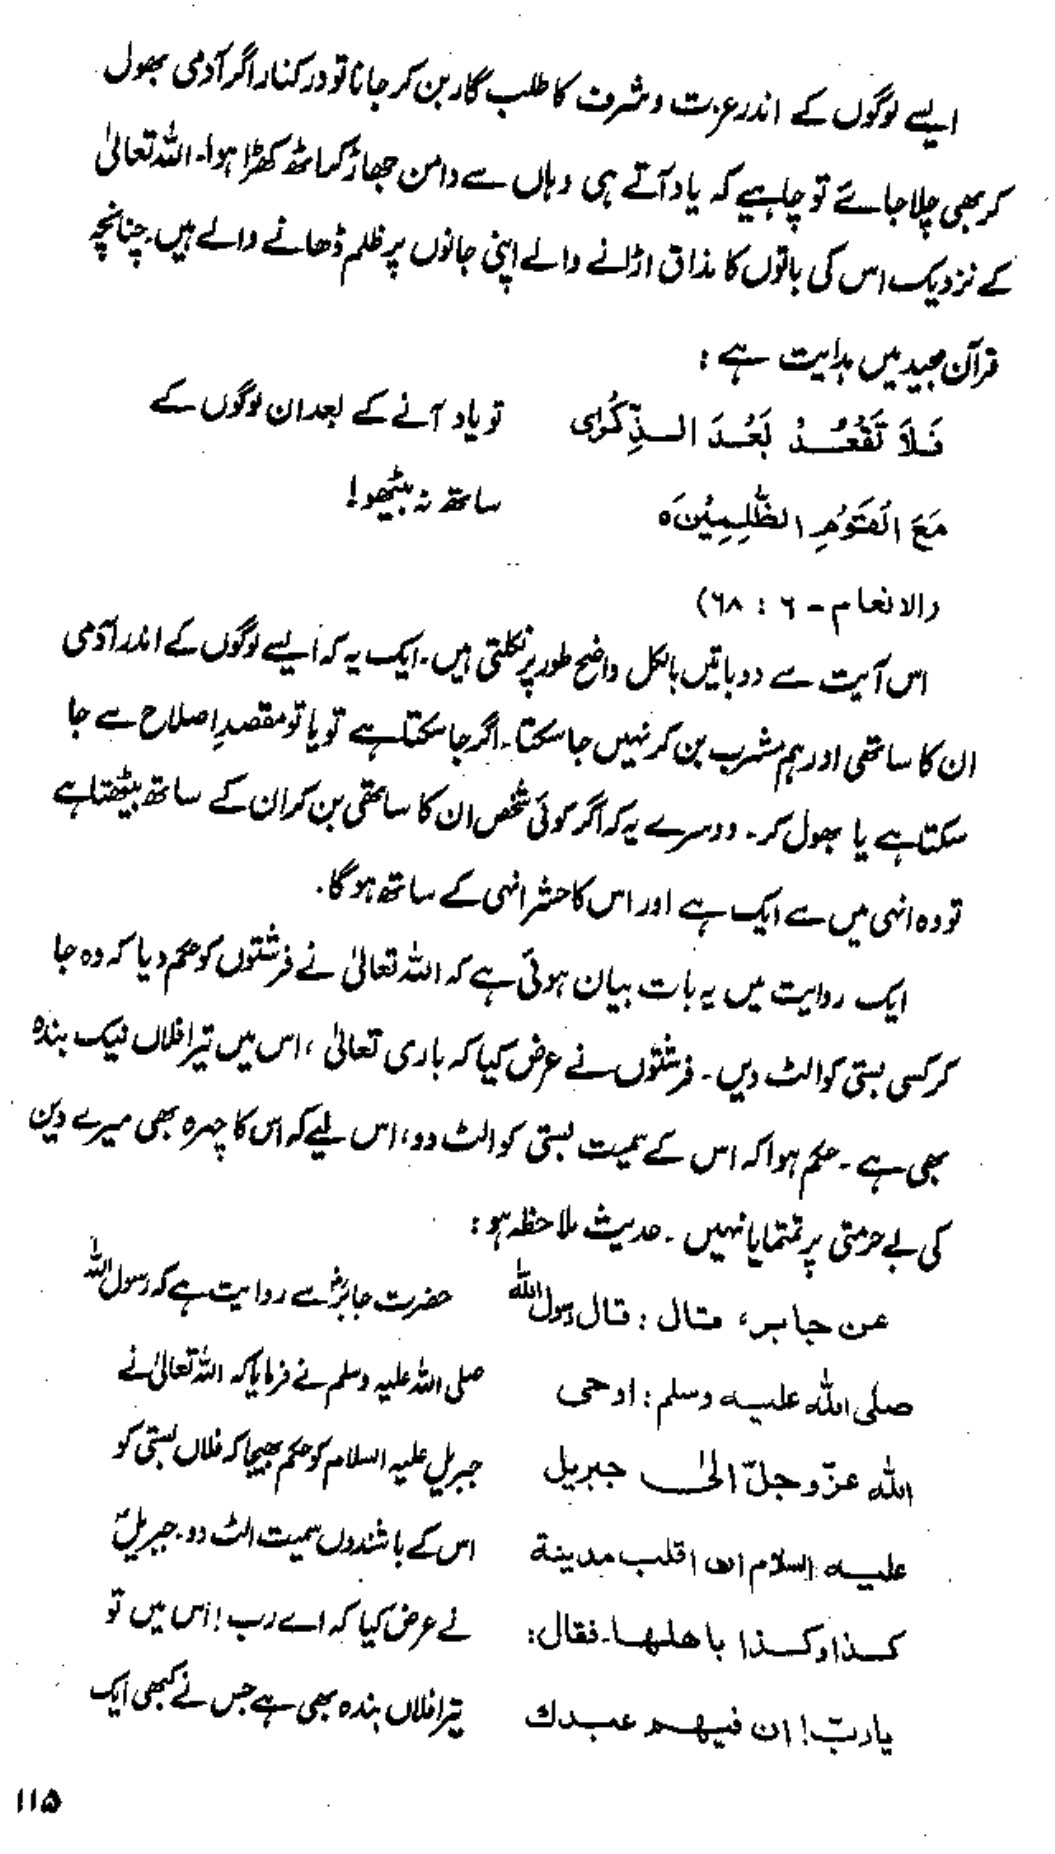 ایسے لوگوں کے اندر عزت و شرف کا طلب گار بن کر جانا تو درکنار اگر آدمی بھول
کر بھی چلا جائے تو چاہیے کہ یاد آتے ہی وہاں سے دامن جھاڑ کر اٹھ کھڑا ہو۔ اللہ تعالیٰ
کے نزدیک اس کی باتوں کا مذاق اڑانے والے اپنی جانوں پر ظلم ڈھانے والے ہیں۔ چنانچہ
قرآن مجید میں ہدایت ہے :
فَلَا تَقْعُدْ بَعْدَ الذِّكْرٰى
مَعَ الْقَوْمِ الظّٰلِمِيْنَ ہ
(الانعام - ٦ : ٦٨)
تو یاد آنے کے بعد ان لوگوں کے
ساتھ نہ بیٹھو !
اس آیت سے دو باتیں بالکل واضح طور پر نکلتی ہیں۔ ایک یہ کہ ایسے لوگوں کے اندر آدمی
ان کا ساتھی اور ہم مشرب بن کر نہیں جا سکتا۔ اگر جا سکتا ہے تو یا تو مقصدِ اصلاح سے جا
سکتا ہے یا بھول کر۔ دوسرے یہ کہ اگر کوئی شخص ان کا ساتھی بن کر ان کے ساتھ بیٹھتا ہے
تو وہ انہی میں سے ایک ہے اور اس کا حشر انہی کے ساتھ ہو گا۔
ایک روایت میں یہ بات بیان ہوئی ہے کہ اللہ تعالیٰ نے فرشتوں کو حکم دیا کہ وہ جا
کر کسی بستی کو الٹ دیں۔ فرشتوں نے عرض کیا کہ باری تعالیٰ ، اس میں تیرا فلاں نیک بندہ
بھی ہے۔ حکم ہوا کہ اس کے سمیت بستی کو الٹ دو ، اس لیے کہ اس کا چہرہ بھی میرے دین
کی بے حرمتی پر تمتمایا نہیں۔ حدیث ملاحظہ ہو :
عن جابرؓ قال : قال رسول اللہ
صلى الله عليه وسلم : اوحى
الله عزّ و جلّ الىٰ جبريل
عليه السلام ان اقلب مدينة
كذا وكذا باهلها۔ فقال :
يا ربّ ! ان فيهم عبدك
حضرت جابرؓ سے روایت ہے کہ رسول اللہ
صلی اللہ علیہ وسلم نے فرمایا کہ اللہ تعالیٰ نے
جبریل علیہ السلام کو حکم بھیجا کہ فلاں بستی کو
اس کے باشندوں سمیت الٹ دو۔ جبریلؑ
نے عرض کیا کہ اے رب ! اس میں تو
تیرا فلاں بندہ بھی ہے جس نے کبھی ایک
۱۱۵